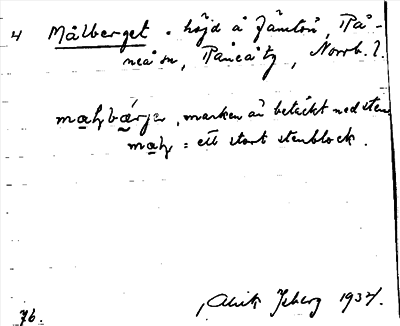 4 Målberget = höjd å Jämtön, Rå-
neå sn, Råneå tg, Norrb. l.
marken är betäckt med sten
= ett stort stenblock.
76. Alrik Isberg 1937.